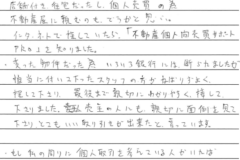 店舗付き住宅だったし、個人売買の為
不動産屋に頼むのも、どうかと思い
インターネットで探していたら、「不動産個人間売買サポート
PRO」を知りました。
・古い物件だった為 いろいろ銀行には、断られましたが
担当に付いて下さったスタッフの方があきらめず、よく
探して下さり、最後まで親切にわかりやすく、接して
下さりました。売主の人にも、親切に面倒を見て
下さり、とてもいい取り引きが出来たと、思っています
・もし私の周りに個人取引を考えている人がいれば